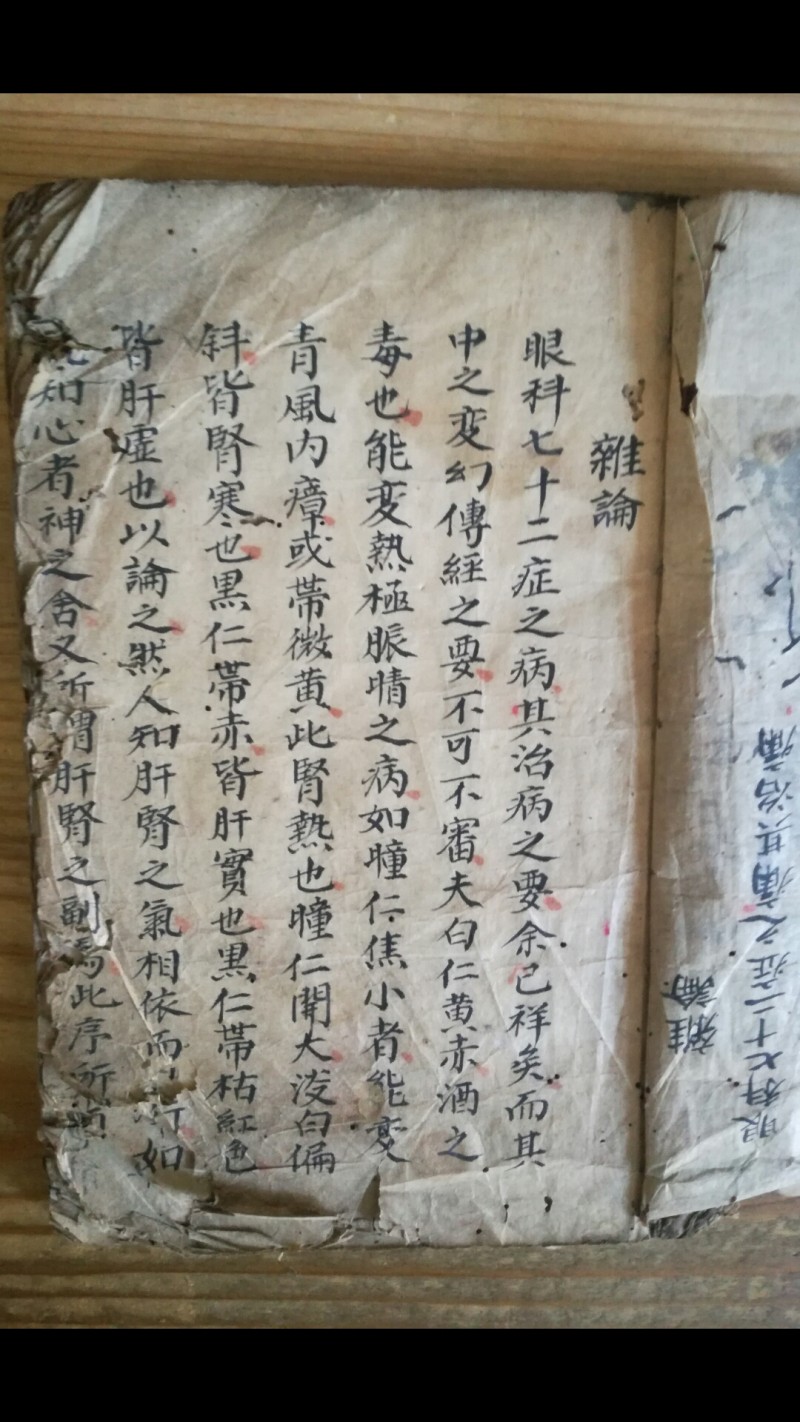 雜論
眼科七十二症之病其治病之要余已祥矣而其
中之変幻傳經之要不可不審夫白仁黄赤酒之
毒也能変熱極脹晴之病如瞳仁焦小者能変
青風内瘴或帯微黄此腎熱也瞳仁開大淡白偏
斜皆腎寒也黒仁帯赤皆肝實也黒仁帯枯紅色
皆肝虚也以論之然人知肝腎之氣相依而行如
知心者神之舍又所謂肝腎之副焉此序所
雜論
眼科七十二症之病其治病